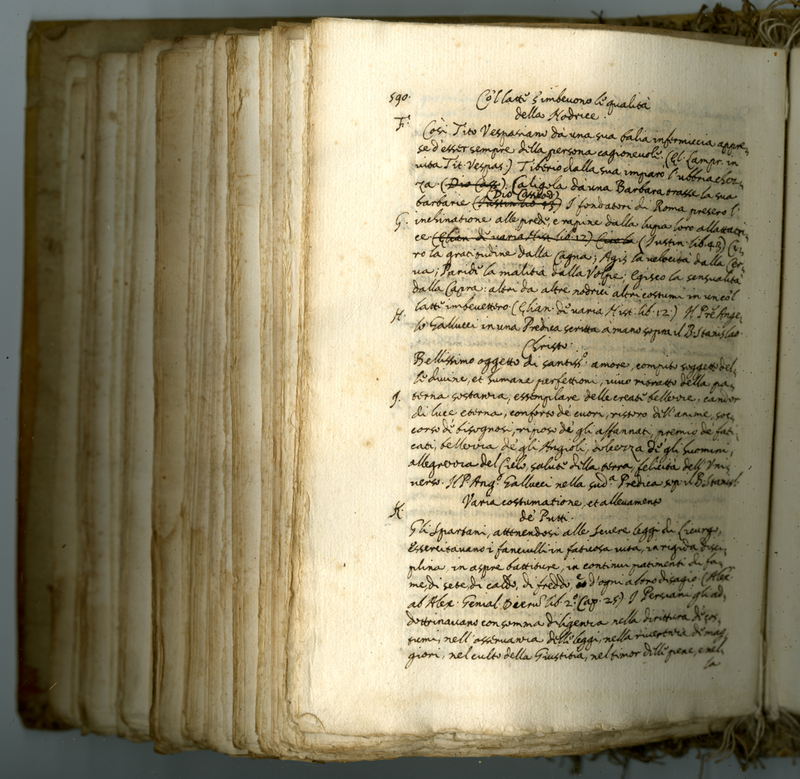 590.
Co'l latte s'imbevono le qualità
della Nodrice.
F.
Così Tito Vespasiano da una sua balia infermiccia appre-
se d'esser sempre della persona cagionevole. (El. Lampr. in
vita Tit. Vespas.) Tiberio dalla sua imparò l'ubbriachez-
za (Dio Cass.) Caligola da una Barbara trasse la sua
Dio Cass.
barbarie (Justin lib. 43) I fondatori di Roma presero l'
G.
inchinatione alle prede, e rapine dalla lupa loro allattatri-
ce (Elian. de varia Hist. lib. 12) Ciro la (Justin lib. 43) Ci-
ro la gratitudine dalla Cagna; Agis la velocità dalla Cer-
va; Paride la malitia dalla Volpe; Egisto la sensualità
dalla Capra: altri da altre nodrici altri costumi in un co'l
latte imbevettero (Elian. de varia Hist. lib. 12.) Il Pre Ange-
H.
lo Gallucci in una Predica scritta a mano sopra il B. Stanislao.
Christo.
Bellissimo oggetto di santiss.o amore, compito soggetto del-
le divine, et humane perfettioni, vivo ritratto della pa-
J.
terna sostanza, essemplare delle create bellezze, candor
di luce eterna, conforto de' cuori, ristoro dell'anime, soc-
corso de' bisognosi, riposo de gli affannati, premio de' fati-
cati, bellezza de gli Angioli, dolcezza de gli huomini,
allegrezza del Cielo, salute della terra, felicità dell'Uni-
verso. Il P. Ang.o Gallucci nella sud.a Predica sop. il B. Stanisl.
Varia costumatione, et allevamento
K.
de' Putti.
Gli Spartani, attenendosi alle severe leggi di Licurgo,
essercitavano i fanciulli in faticosa vita, in rigida disci-
plina, in aspre battiture, in continui patimenti di fa-
me, di sete, di caldo, di freddo, d'ogni altro disagio (Alex.
ab Alex. Genial. Dierū lib. 2.o Cap. 25) I Persiani gli ad-
dottrinavano con somma diligenza nella dirittura de' cos-
tumi, nell'osservanza delle leggi, nella riverenza de' mag-
giori, nel culto della Giustitia, nel timor delle pene, e nel-
la